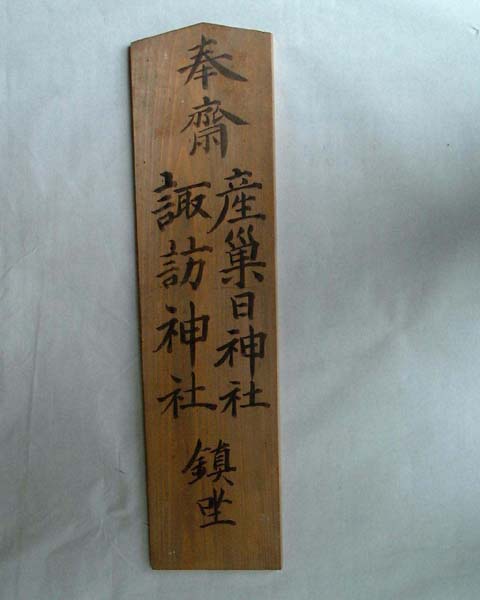 奉齋
産巣日神社
諏訪神社
鎮坐